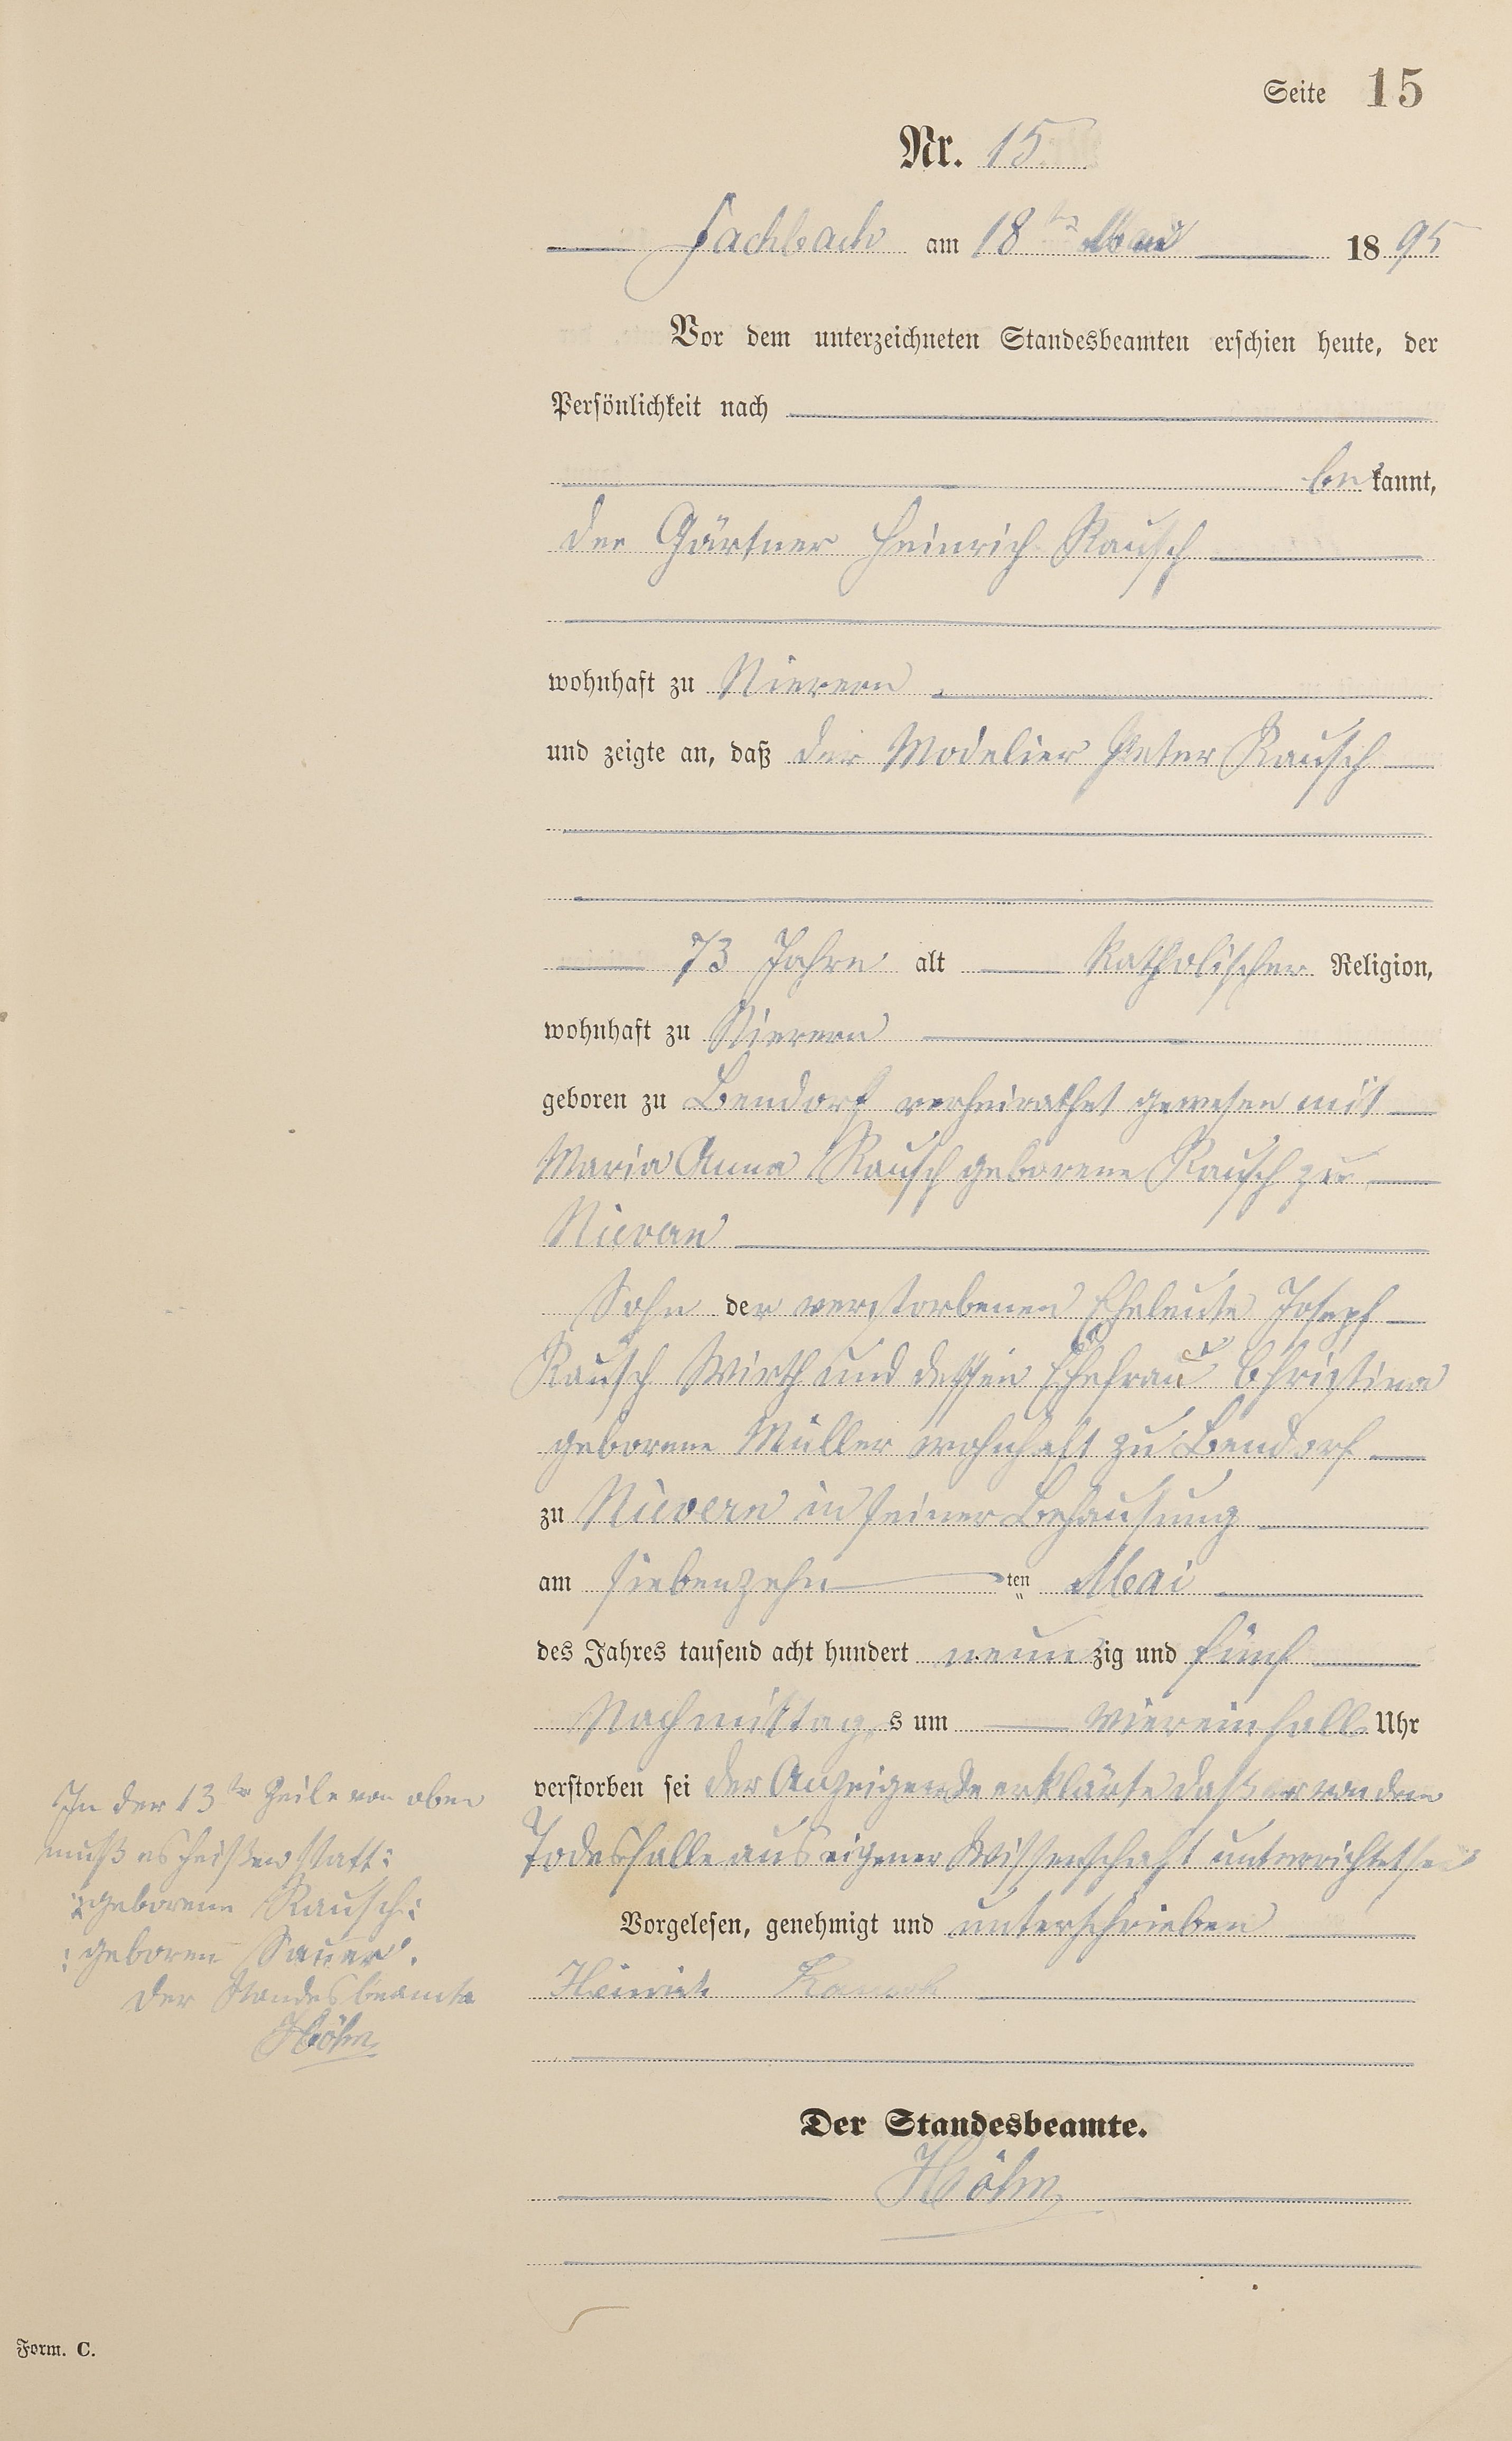 Seite 15
Nr. 15.
Fachbach am 18ten Mai 1895
Vor dem unterzeichneten Standesbeamten erschien heute, der
Persönlichkeit nach
bekannt,
der Gärtner Heinrich Rausch
wohnhaft zu Nievern
und zeigte an, daß der Modelier Peter Rausch
73 Jahre alt Katholischer Religion,
wohnhaft zu Nievern
geboren zu Bendorf verheirathet gewesen mit
Maria Anna Rausch geborene Rausch zu
Nievern
Sohn der verstorbenen Eheleute Joseph
Rausch Wirth und dessen Ehefrau Christina
geborene Müller wohnhaft zu Bendorf
zu Nievern in seiner Behausung
am siebenzehnten Mai
des Jahres tausend acht hundert neunzig und fünf
Nachmittags um viereinhalb Uhr
verstorben sei der Anzeigende erklärte daß er von dem
Todesfalle aus eigener Wissenschaft unterrichtet sei
Vorgelesen, genehmigt und unterschrieben
Heinrich Rausch
In der 13te Zeile von oben
muß es heißen statt:
geborene Rausch:
: geborene Sauer".
Der Standesbeamte
Höhn
Der Standesbeamte.
Höhn
Form. C.